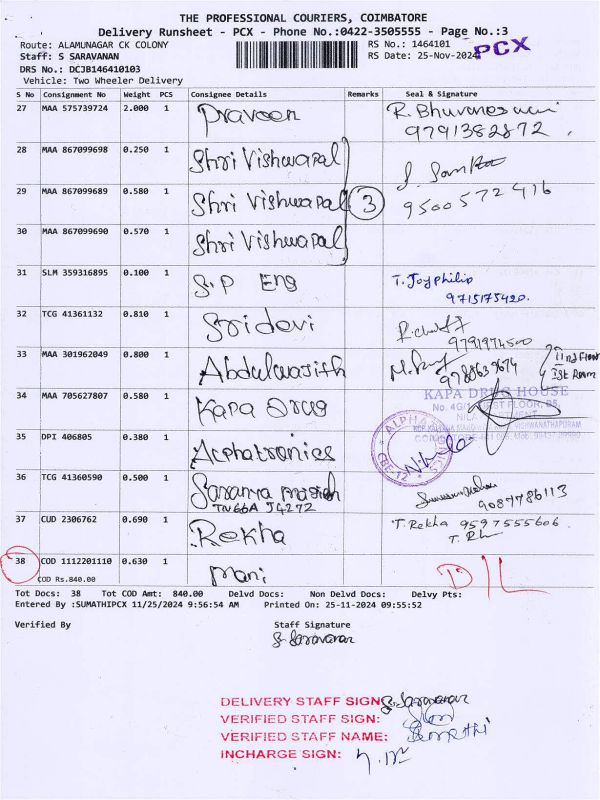 THE PROFESSIONAL COURIERS, COIMBATORE
Delivery Runsheet - PCX - Phone No.:0422-3505555 - Page No.:3
Route: ALAMUNAGAR CK COLONY
RS No.: 1464101
Staff: S SARAVANAN
RS Date: 25-Nov-2024
PCX
DRS No.: DCJB146410103
Vehicle: Two Wheeler Delivery
S No Consignment No Weight PCS Consignee Details Remarks Seal & Signature
27 MAA 575739724 2.000 1 Praveen R. Bhuvaneswari
9791382872
28 MAA 867099698 0.250 1 Shri Vishwapal
29 MAA 867099689 0.580 1 Shri Vishwapal 3 9500572416
30 MAA 867099690 0.570 1 Shri Vishwapal
31 SLM 359316895 0.100 1 S.P Eng T. Joyphilip
9715175420.
32 TCG 41361132 0.810 1 Sridevi
9791974500
33 MAA 301962049 0.800 1 Abdulwasith 9788639674 IInd Floor
1st Room
34 MAA 705627807 0.580 1 Kapa Drug KAPA DRUG HOUSE
35 DPI 406805 0.380 1 Alphatronics
36 TCG 41360590 0.500 1 Saranya
TN66A J4272 9087786113
37 CUD 2306762 0.690 1 Rekha T. Rekha 9597555606
38 COD 1112201110 0.630 1 Mani D/L
COD Rs.840.00
Tot Docs: 38 Tot COD Amt: 840.00 Delvd Docs: Non Delvd Docs: Delvy Pts:
Entered By :SUMATHIPCX 11/25/2024 9:56:54 AM Printed On: 25-11-2024 09:55:52
Verified By Staff Signature
S. Saravanan
DELIVERY STAFF SIGN: S. Saravanan
VERIFIED STAFF SIGN:
VERIFIED STAFF NAME: Sumathi
INCHARGE SIGN: